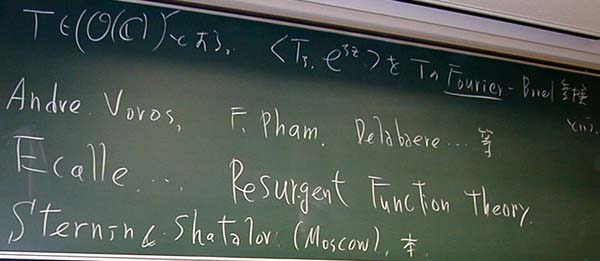 T∈(O(ℂ))'とする, <T_ζ, e^{ζz}>を Tの Fourier-Borel 変換
という.
Andre Voros, F. Pham. Delabaere... 等
Ecalle.... Resurgent Function Theory.
Sternin & Shatalov (Moscow), 本